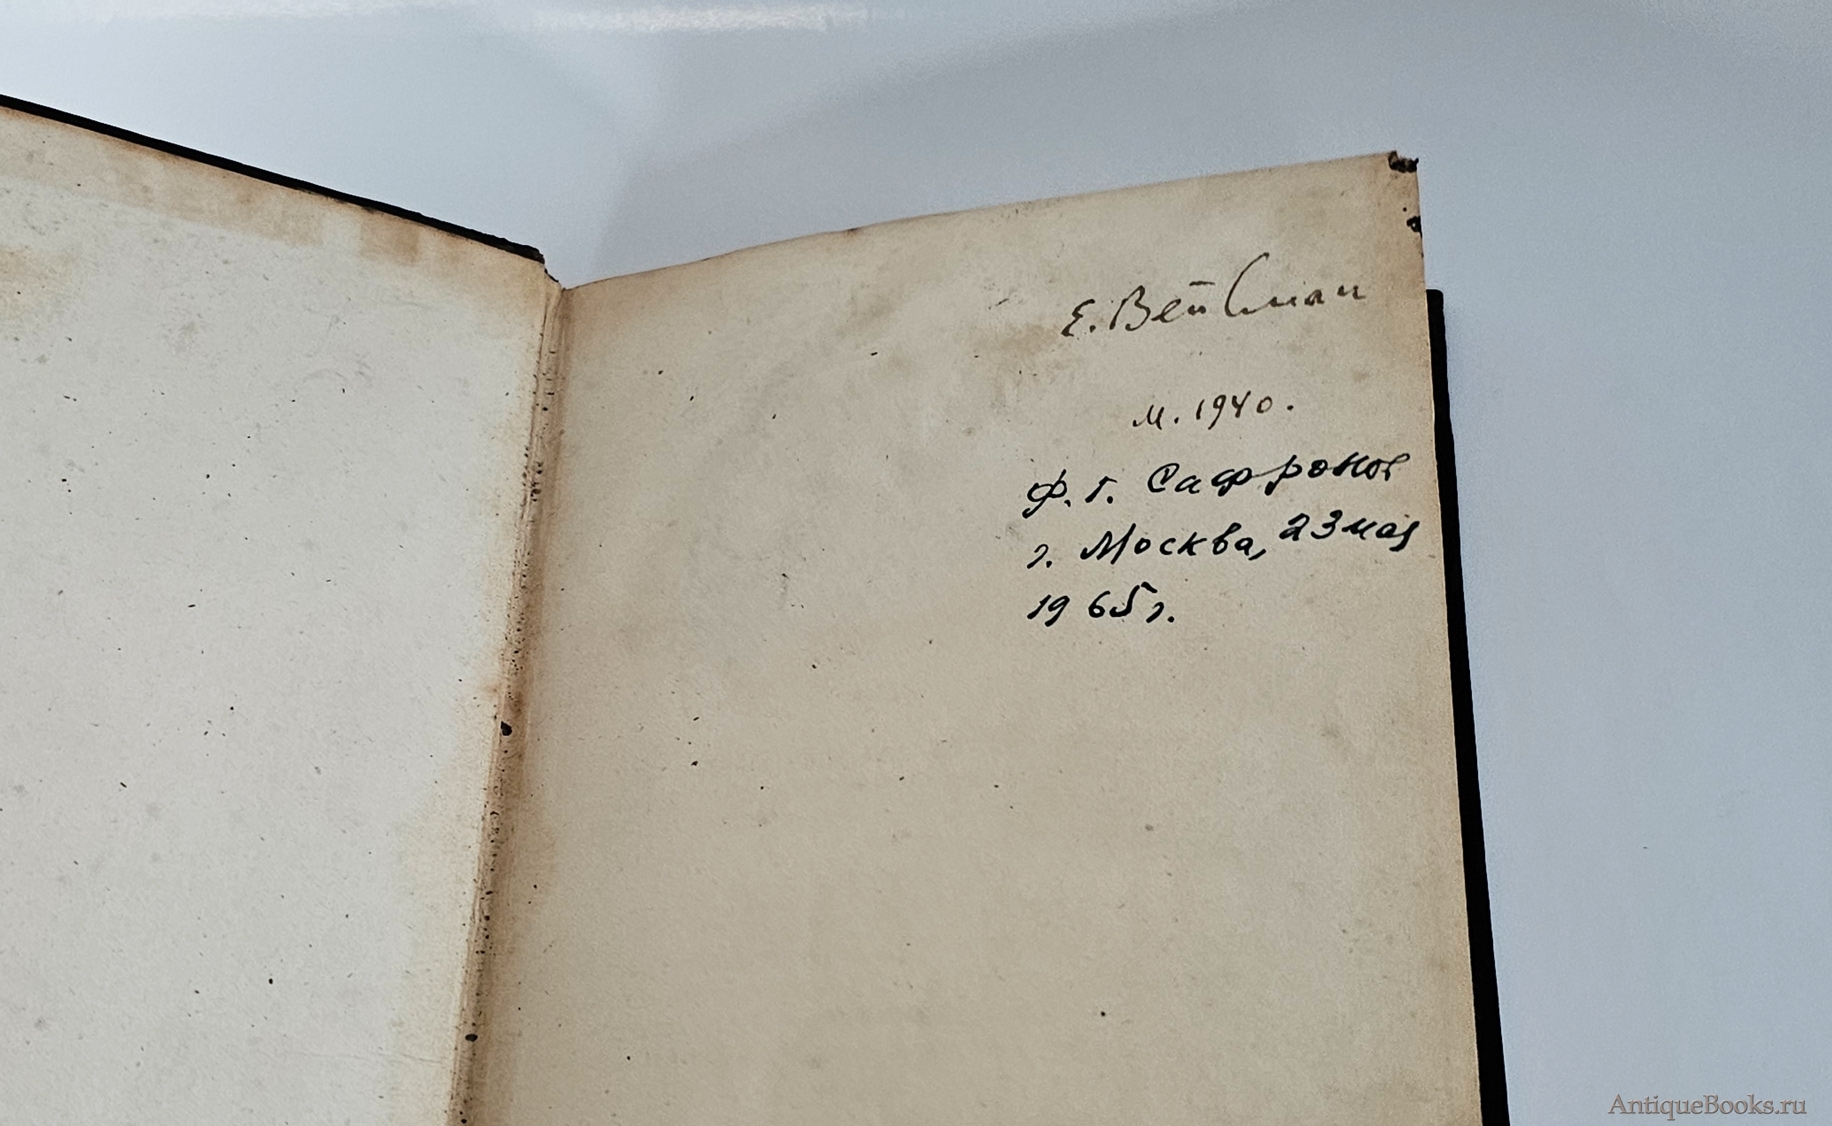 Е. Вейсман
М. 1940.
Ф. Г. Сафронов
г. Москва, 23 мая
1965 г.
AntiqueBooks.ru